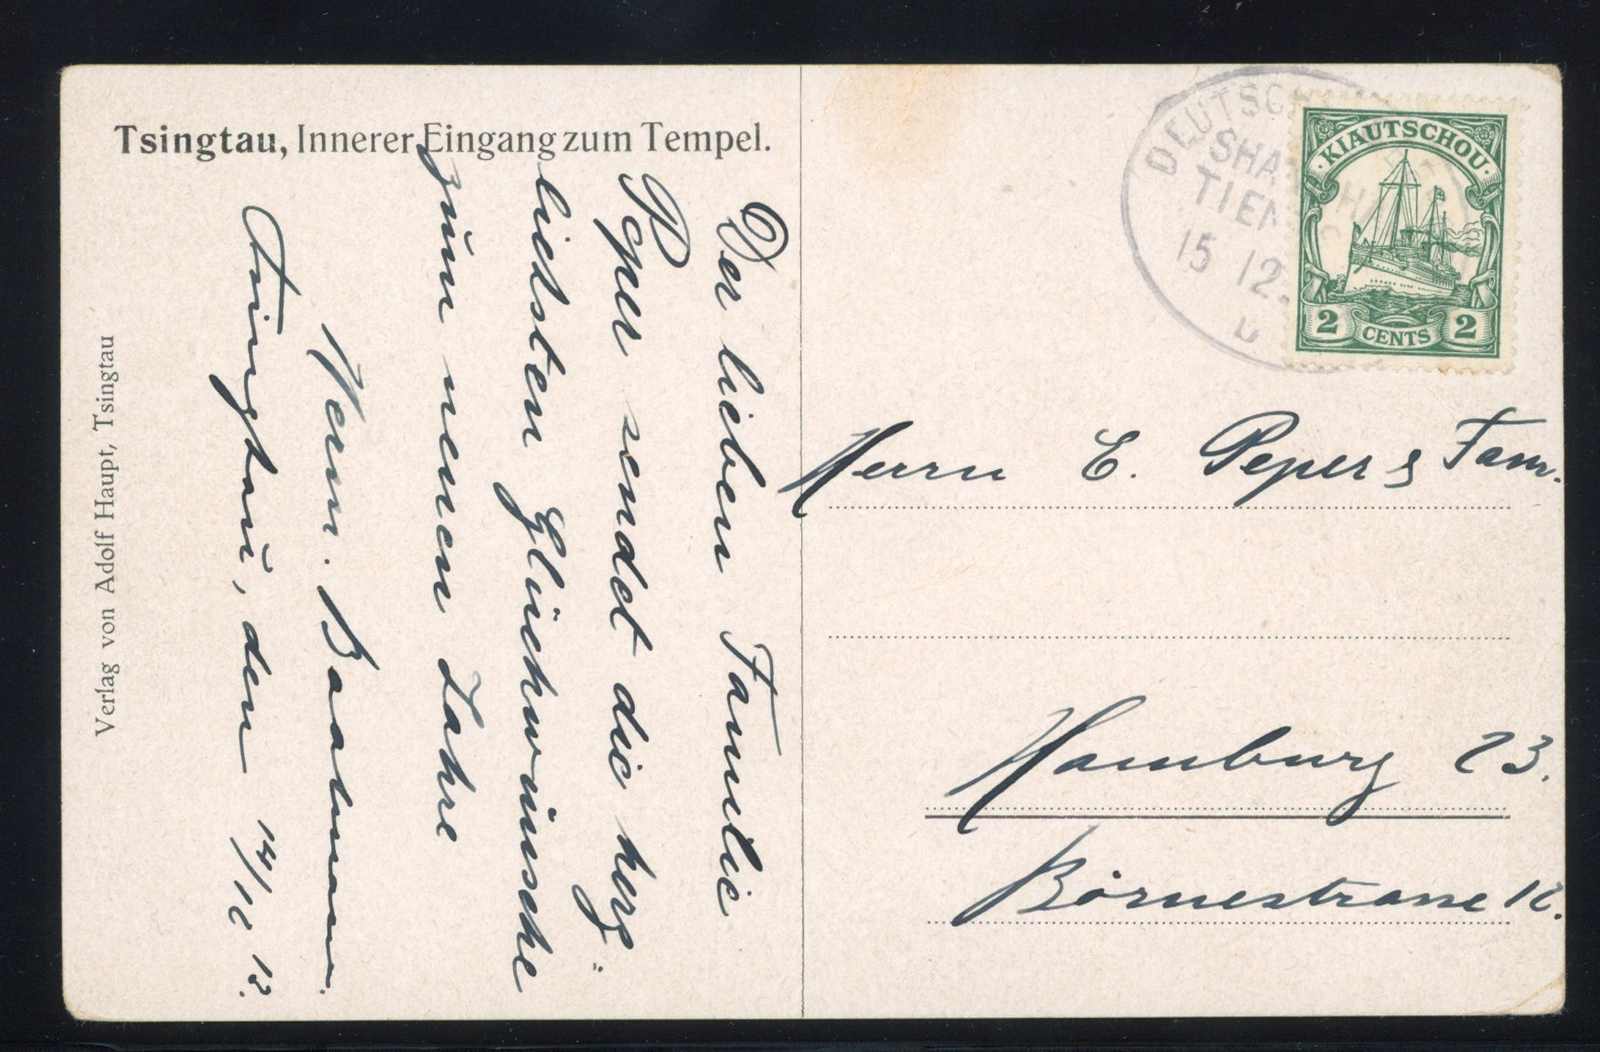 Tsingtau, Innerer Eingang zum Tempel.
Der lieben Familie
Peper sendet die herz-
lichsten Glückwünsche
zum neuen Jahre
Herm. Baatmann.
Tsingtau, den 14/12 12.
Verlag von Adolf Haupt, Tsingtau
DEUTSCH
SHA
TIEN
15 12.
KIAUTSCHOU
2 CENTS 2
Herrn E. Peper & Fam.
Hamburg 23.
Börnestrasse 12.